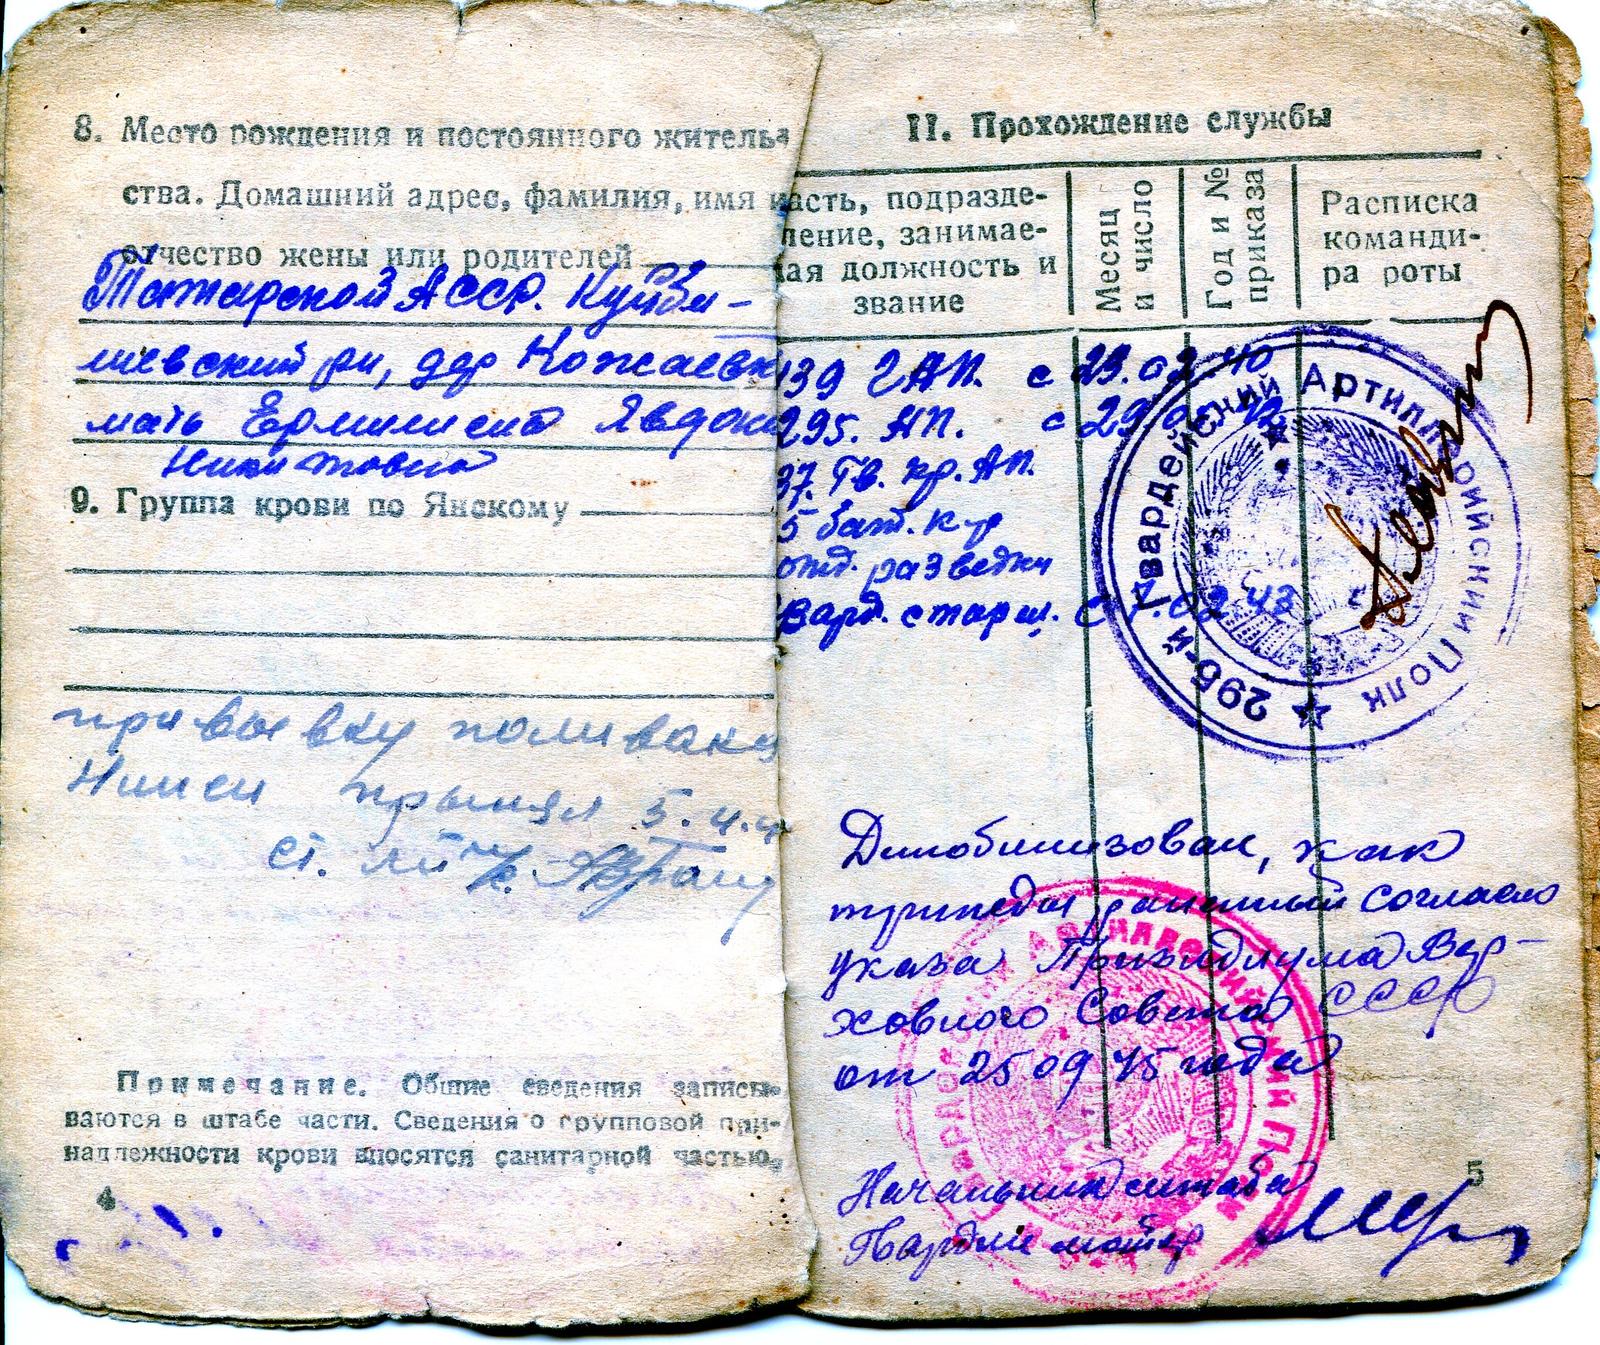 8. Место рождения и постоянного житель-
ства. Домашний адрес, фамилия, имя
отчество жены или родителей
Татарской АССР. Куйбы-
шевский р-н, дер Кожаевк
мать Ермишена Явдок
Никитовна
9. Группа крови по Янскому
прививку поливакц
Ниися принял 5.4.4
ст.
Примечание. Общие сведения записы-
ваются в штабе части. Сведения о групповой при-
надлежности крови вносятся санитарной частью.
4
II. Прохождение службы
часть, подразде-
ление, занимае-
мая должность и
звание
Месяц и число
Год и № приказа
Расписка
команди-
ра роты
139 ГАП. с 29.02.40
295. АП. с 29
37. Гв. кр. АП.
5 бат. к-р
отд. разведки
гвард. старш. с 7.02 43
296-й Гвардейский Артиллерийский Полк
Димобилизован, как
трижды раненный согласно
указа Призидиума Вер-
ховного Совета СССР
от 25 09 45 года
Начальник штаба
Гвардии майор
5